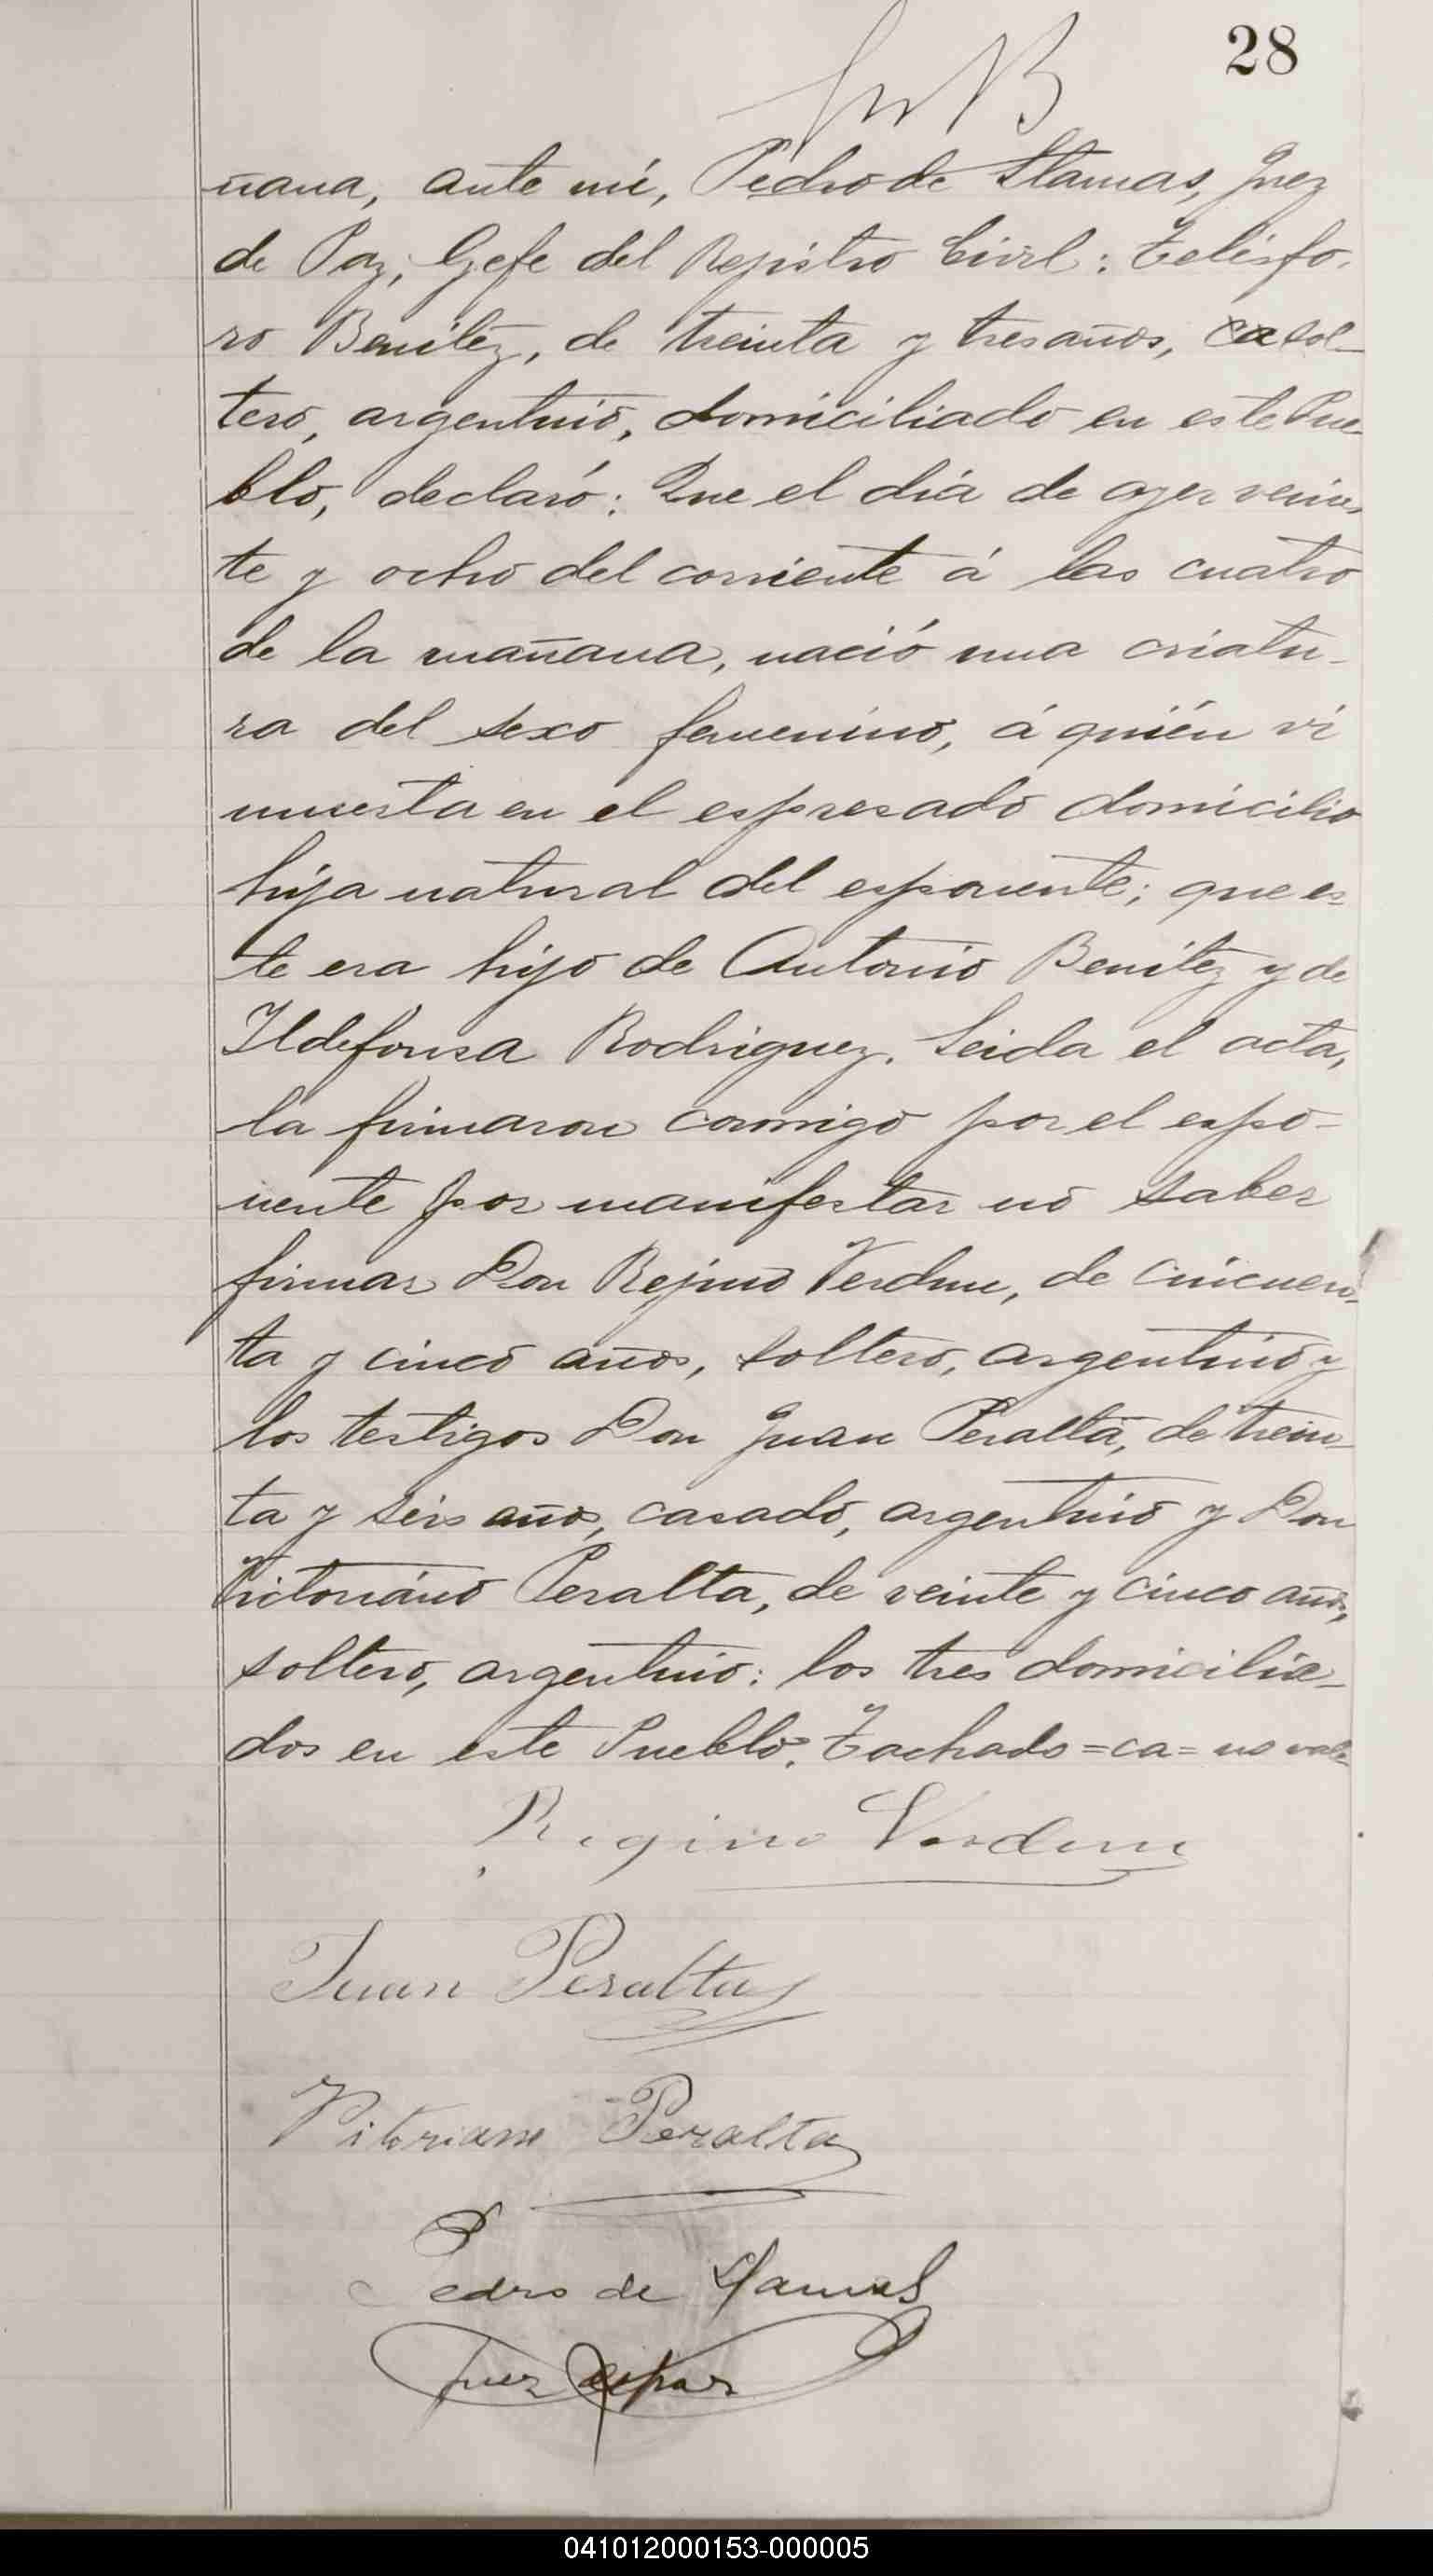 28
ñana, ante mí, Pedro de Llamas, Juez
de Paz, Gefe del Registro Civil: Telésfo-
ro Benitez, de treinta y tres años, ca sol-
tero, argentino, domiciliado en este Pue-
blo, declaró: Que el día de ayer vein-
te y ocho del corriente á las cuatro
de la mañana, nació una criatu-
ra del sexo femenino, á quién vi
muerta en el espresado domicilio
hija natural del esponente; que es-
te era hijo de Antonio Benitez y de
Ildefonsa Rodriguez. Leida el acta,
la firmaron conmigo por el espo-
nente por manifestar no saber
firmar Don Rejino Verdun, de cincuen-
ta y cinco años, soltero, argentino y
los testigos Don Juan Peralta, de trein-
ta y seis años, casado, argentino y Don
Victoriano Peralta, de veinte y cinco años,
soltero, argentino: los tres domicilia-
dos en este Pueblo. Tachado=ca=no vale
Regino Verdun
Juan Peralta
Vitoriano Peralta
Pedro de Llamas
Juez de paz
041012000153-000005